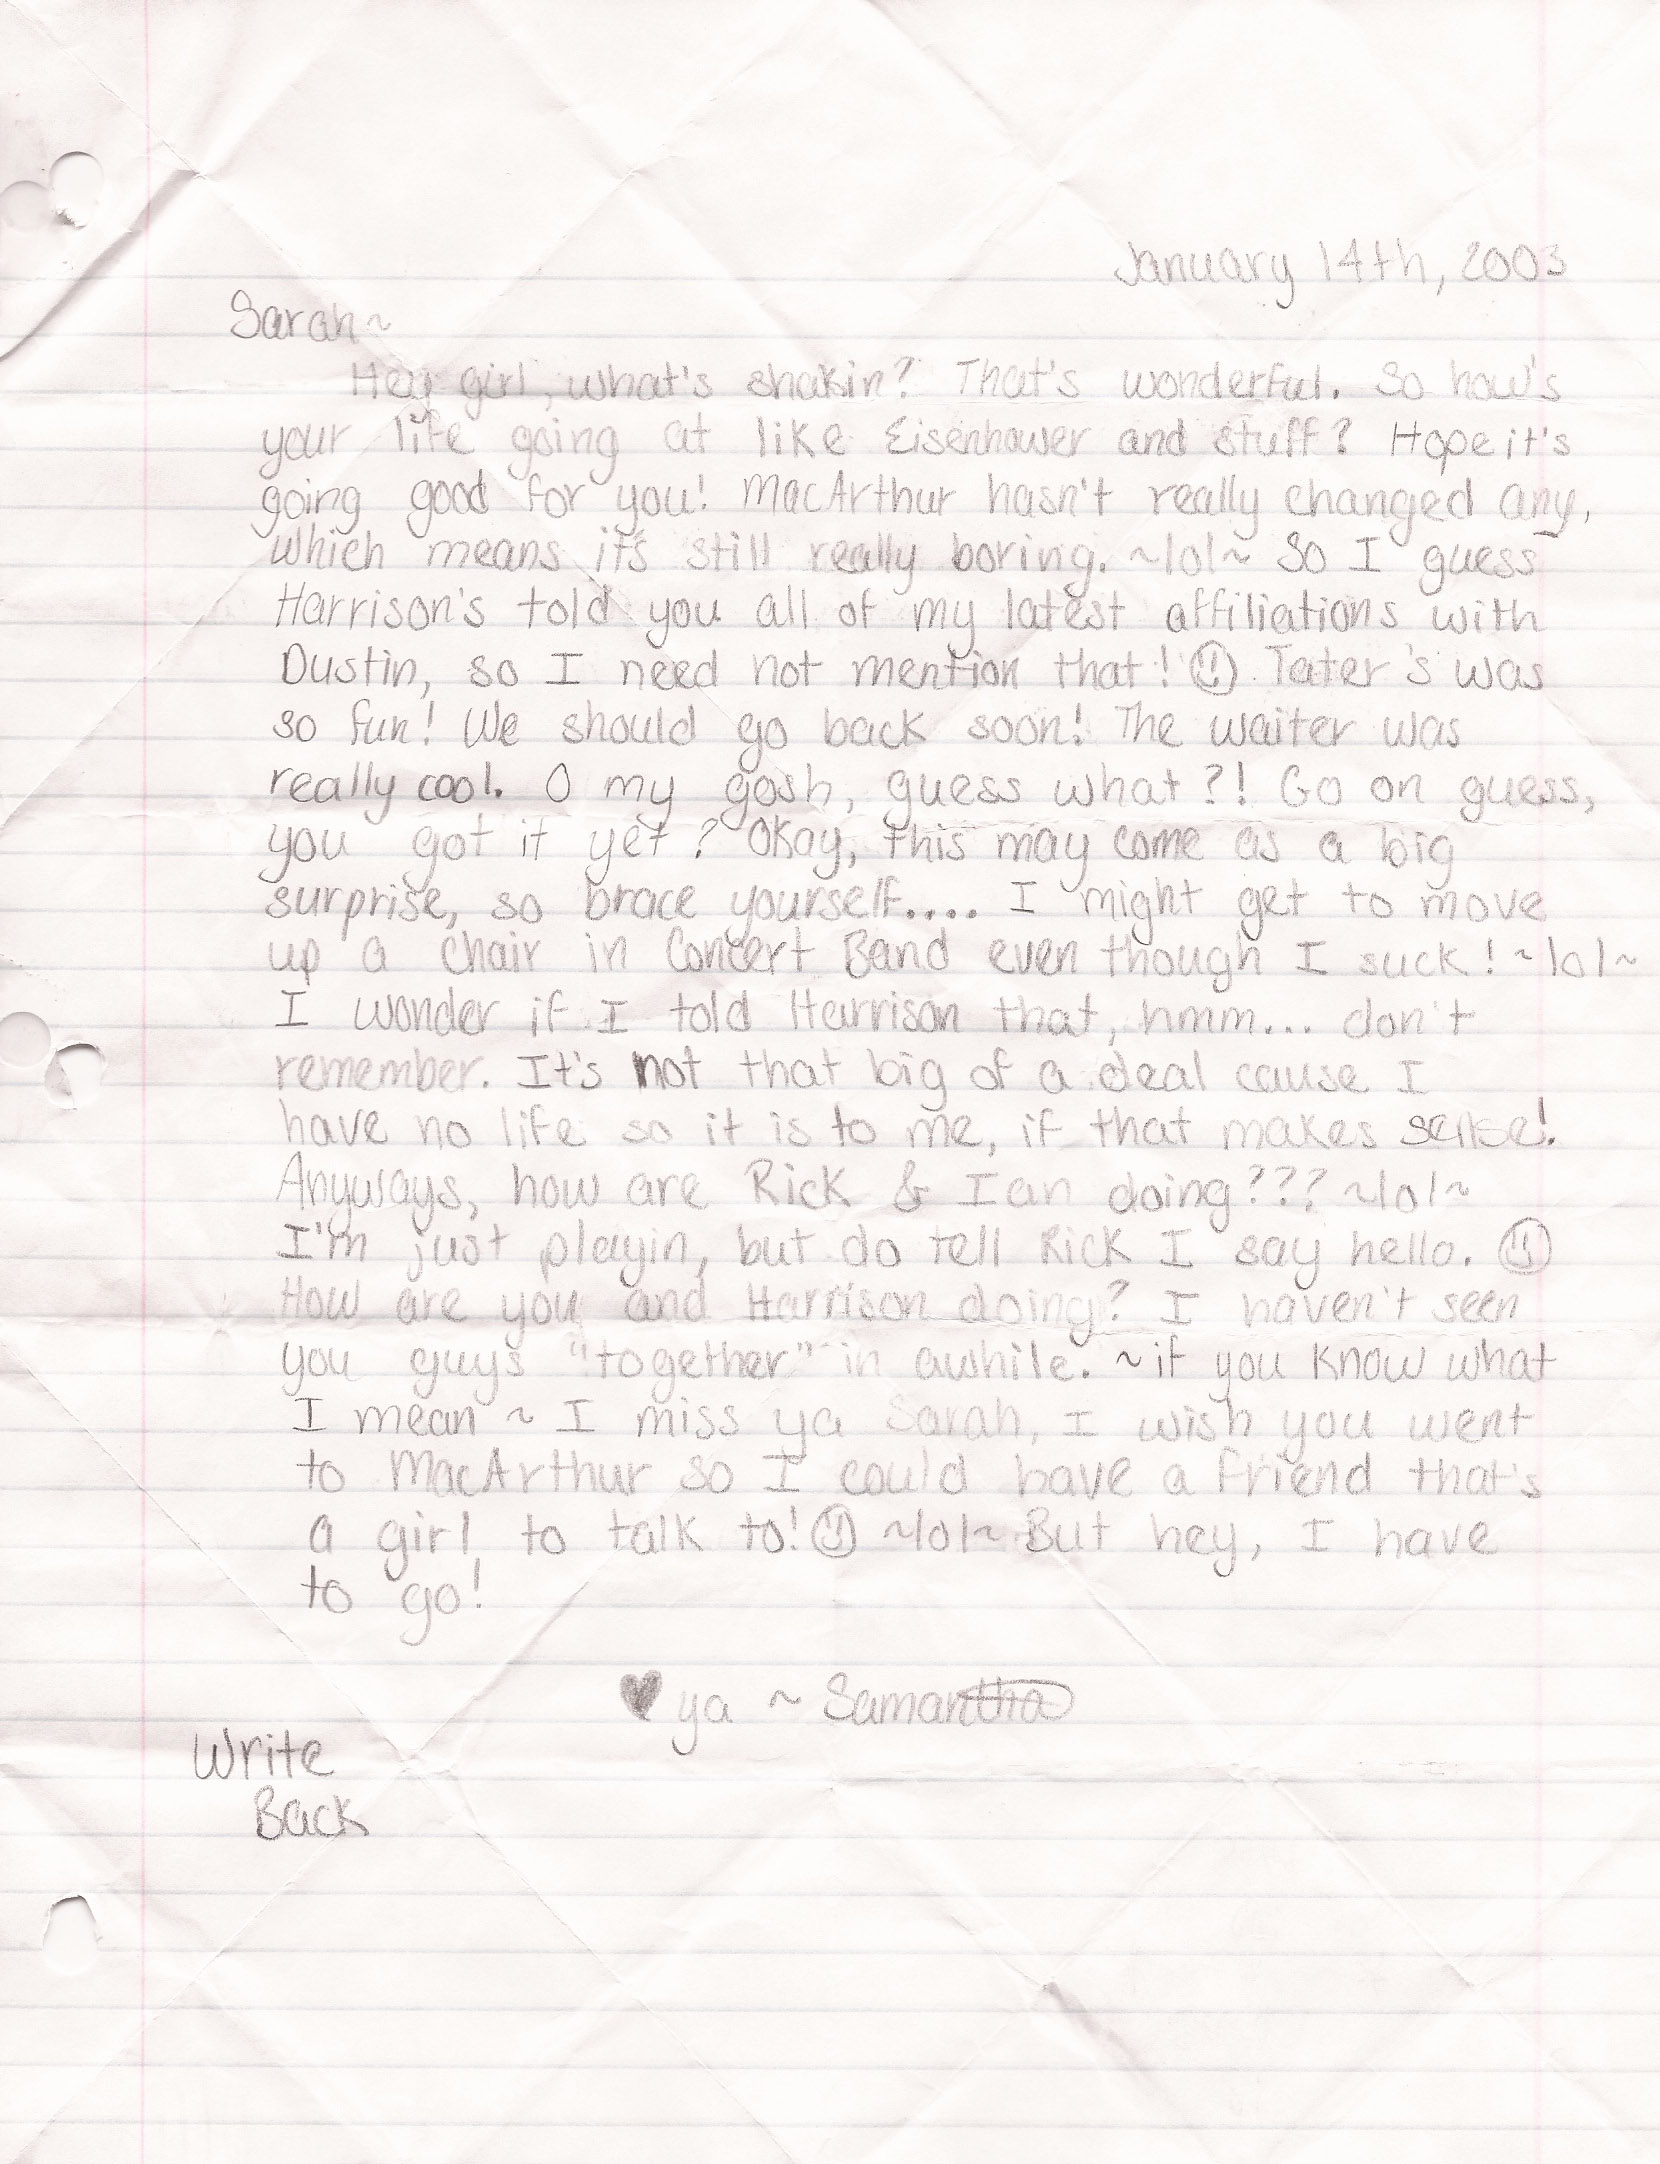 January 14th, 2003
Sarah~
Hey girl, what's shakin? That's wonderful. So how's
your life going at like Eisenhower and stuff? Hope it's
going good for you! MacArthur hasn't really changed any,
which means it's still really boring. ~lol~ So I guess
Harrison's told you all of my latest affiliations with
Dustin, so I need not mention that! ☺ Tater's was
so fun! We should go back soon! The waiter was
really cool. O my gosh, guess what?! Go on guess,
you got it yet? Okay, this may come as a big
surprise, so brace yourself.... I might get to move
up a chair in Concert Band even though I suck! ~lol~
I wonder if I told Harrison that, hmm... don't
remember. It's not that big of a deal cause I
have no life so it is to me, if that makes sense!
Anyways, how are Rick & Ian doing??? ~lol~
I'm just playin, but do tell Rick I say hello. ☺
How are you and Harrison doing? I haven't seen
you guys "together" in awhile. ~if you know what
I mean ~ I miss ya Sarah, I wish you went
to MacArthur so I could have a friend that's
a girl to talk to! ☺ ~lol~ But hey, I have
to go!
♥ ya ~ Samantha
Write
Back